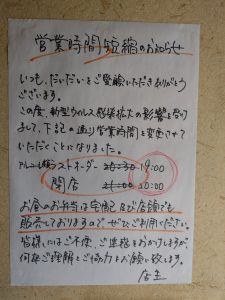 営業時間短縮のお知らせ
いつも、だいだいをご愛顧いただきありがとう
ございます。
この度、新型ウィルス感染拡大の影響を受け
まして、下記の通り営業時間を変更させて
いただくことになりました。
アルコール類ラストオーダー 20:30 19:00
閉店 21:00 20:00
お昼のお弁当は宅配及び店頭でも
販売しておりますので、ぜひご利用ください。
皆様にはご不便、ご迷惑をおかけしますが、
何卒ご理解とご協力をお願い致します。
店主